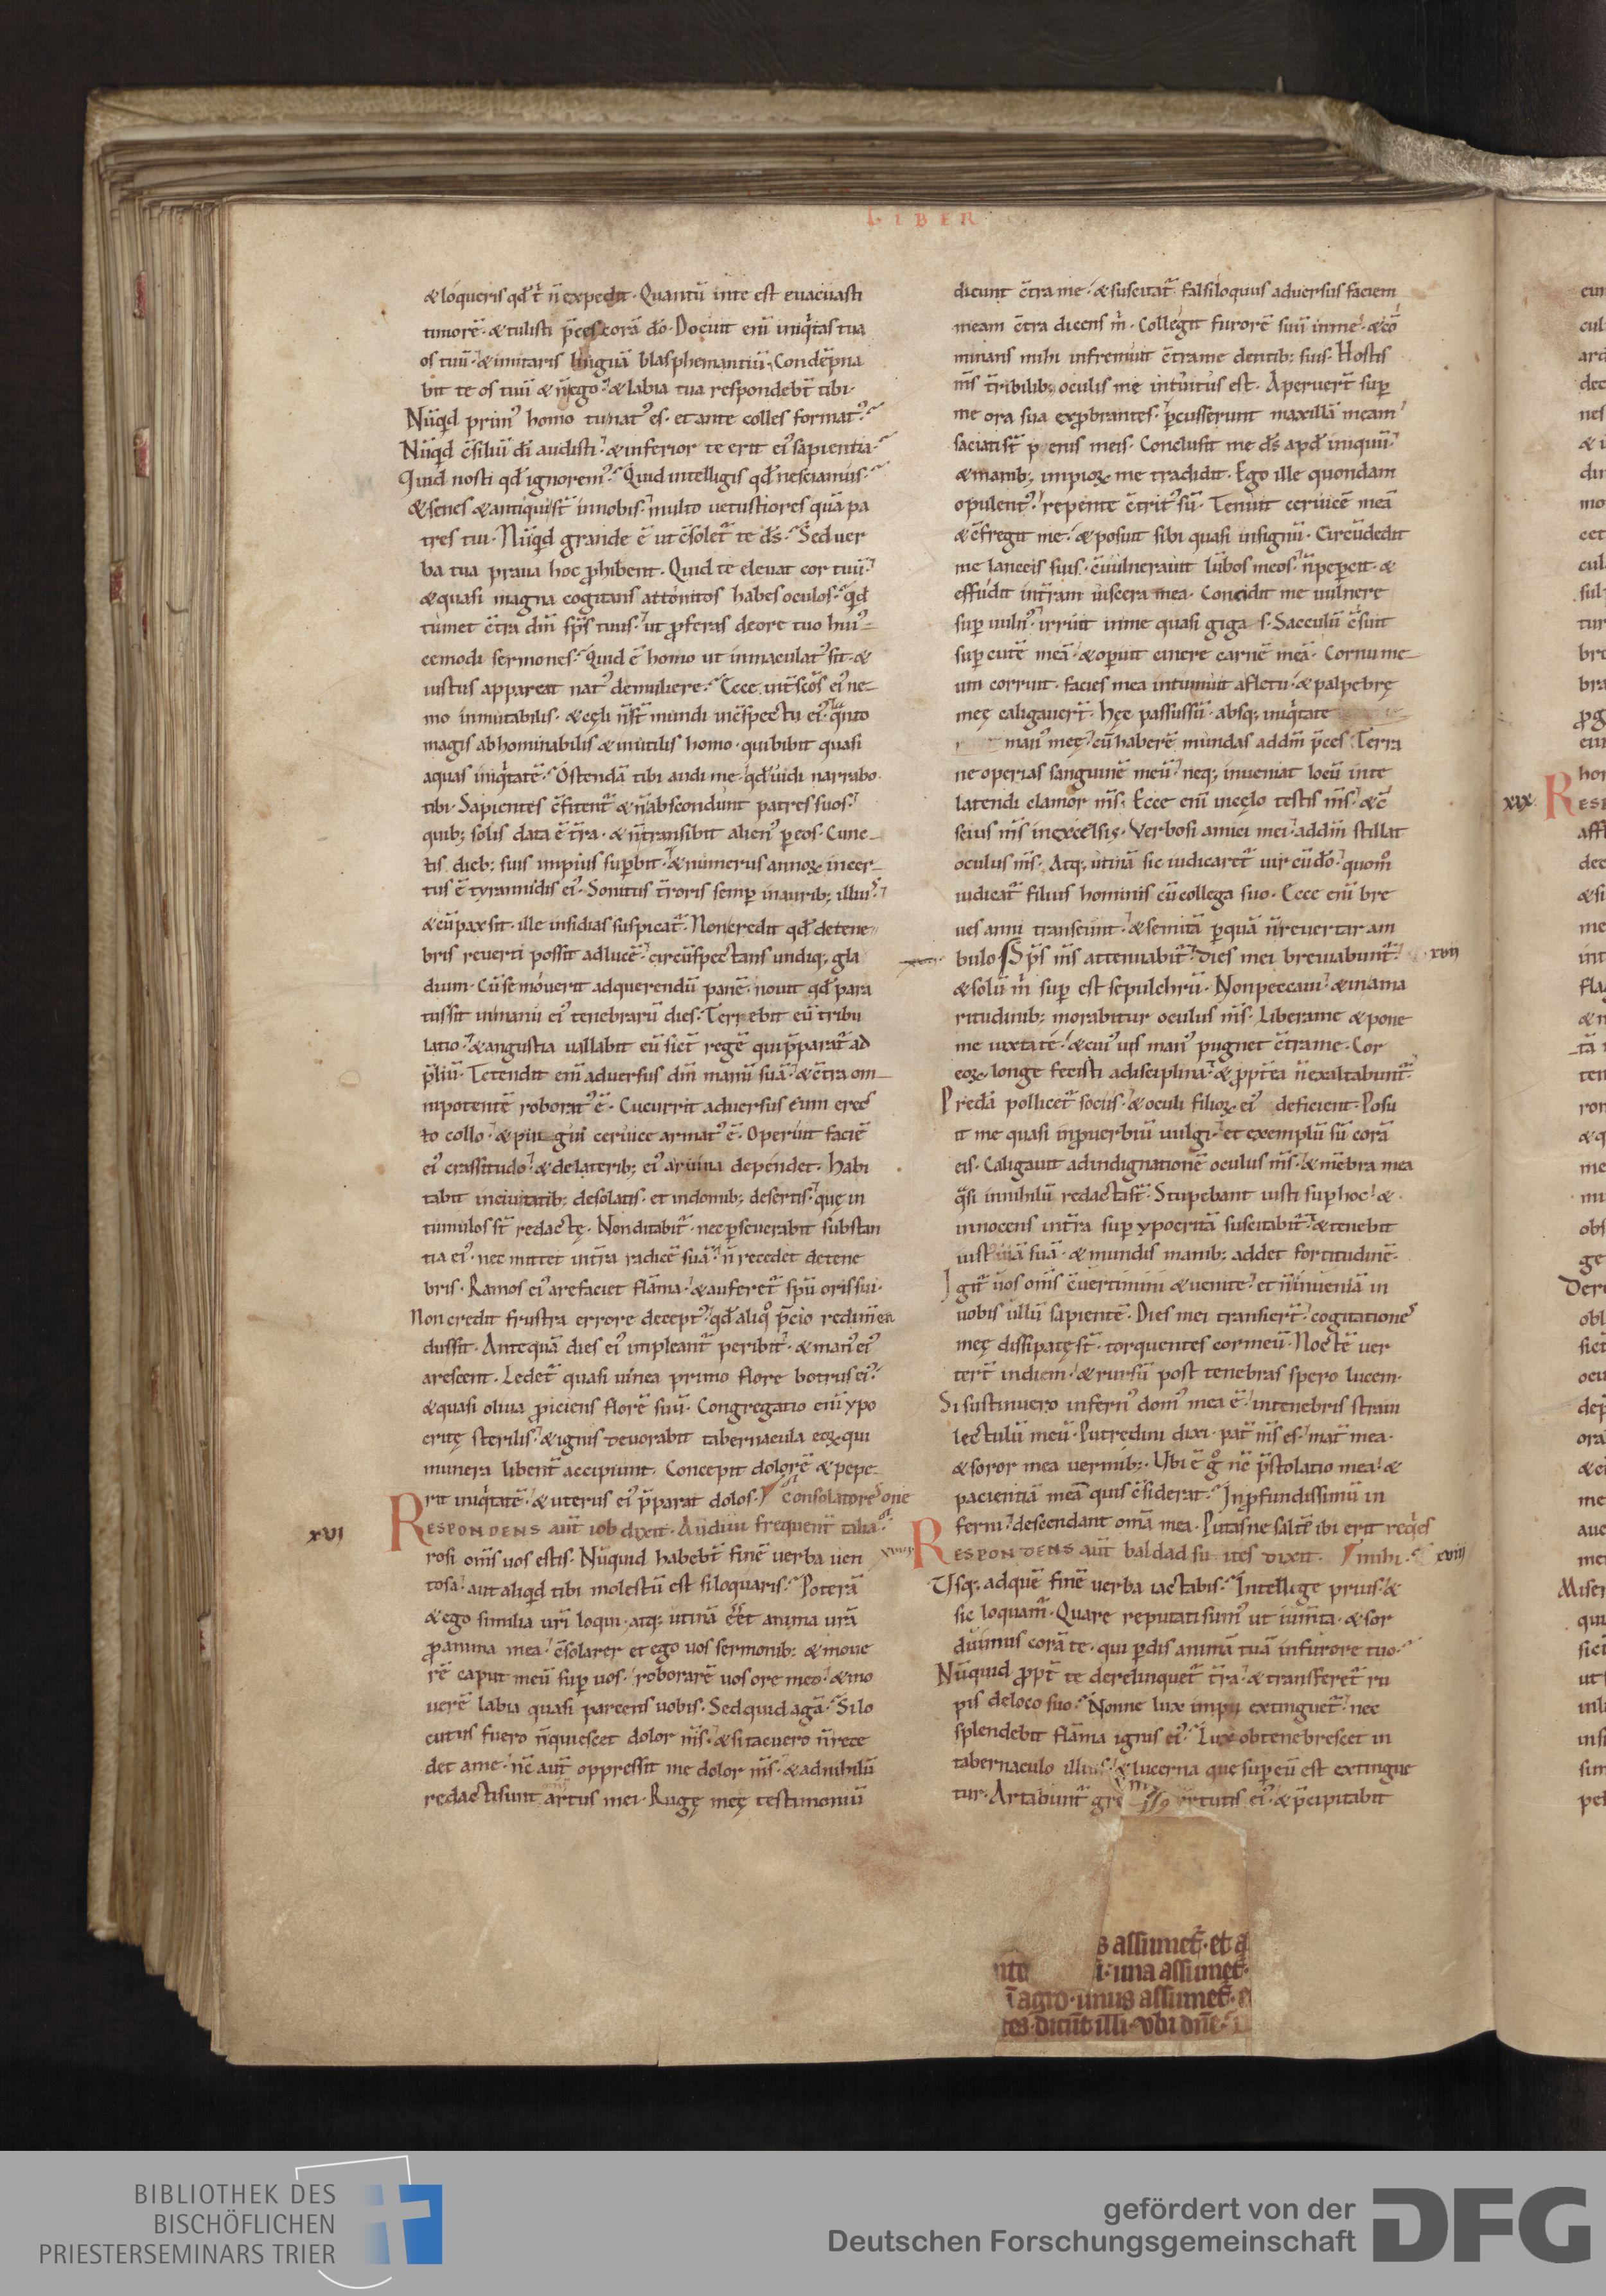 LIBER
& loqueris qđ t̄ n̄ expedit. Quantū inte est euacuasti
timorē. & tulisti p̄ces corā dō. Docuit enī iniq̇tas tua
os tuū. & imitaris linguā blasphemantiū. Condēpna
bit te os tuū & n̄ ego. & labia tua respondebt̄ tibi.
Nūqd prim᾽ homo tu nat᾽ es. et ante colles format᾽.
Nūqd c̄siliū dī audisti. & inferior te erit ei᾽ sapientia.
Quid nosti qđ ignorem᾽. Quid intelligis qđ nesciamus.
& senes & antiqui st̄ innobis. multo uetustiores quā pa
tres tui. Nūqd grande ē ut c̄solet̄ te dś. Sed uer
ba tua praua hoc ꝓhibent. Quid te eleuat cor tuū.
& quasi magna cogitans attonitos habes oculos. qđ
tumet c̄tra dm̄ sp̄s tuus. ut ꝓferas deore tuo hui᾽
cemodi sermones. Quid ē homo ut inmaculat᾽ sit. &
iustus appareat nat᾽ demuliere. Ecce int̄ sc̄os ei᾽ ne
mo inmutabilis. & cęli n̄ st̄ mundi inc̄spectu ei᾽. q̄nto
magis abhominabilis & inutilis homo. qui bibit quasi
aquas iniq̇tatē. Ostendā tibi audi me. qđ uidi narrabo
tibi. Sapientes c̄fitent̄ & n̄ abscondunt patres suos.
quib; solis data ē t̄ra. & n̄ transibit alien᾽ ꝑeos. Cunc
tis dieb; suis impius supbit. & numerus annoꝝ incer
tus ē tyrannidis ei᾽. Sonitus t̄roris semp inaurib; illi᾽.
& cū pax sit. ille insidias suspicat̄. Non credit qđ detene
bris reuerti possit adlucē. circūspectans undiq; gla
dium. Cū se mouerit adquerendū panē. nouit qđ para
tus sit inmanu ei᾽ tenebrarū dies. Terrebit eū tribu
latio. & angustia uallabit eū sic̄ regē qui p̄parat̄ ad
p̄liū. Tetendit enī aduersus dm̄ manū suā. & c̄tra om
nipotentē roborat᾽ ē. Cucurrit aduersus eum erec
to collo. & pin gui ceruice armat᾽ ē. Operuit faciē
ei᾽ crassitudo. & delaterib; ei᾽ aruina dependet. Habi
tabit inciuitatib; desolatis. et indomib; desertis. quę in
tumulos st̄ redactę. Non ditabit̄. nec ꝑseuerabit substan
tia ei᾽. nec mittet int̄ra radicē suā. n̄ recedet detene
bris. Ramos ei᾽ arefaciet flāma. & auferet̄ spū oris sui.
Non credit frustra errore decept᾽. qđ aliq̊ p̄cio redimen
dus sit. Antequā dies ei᾽ impleant̄ peribit. & man᾽ ei᾽
arescent. Ledet̄ quasi uinea primo flore botrus ei᾽.
& quasi oliua ꝓiciens florē suū. Congregatio enī ypo
critę sterilis. & ignis deuorabit tabernacula eoꝝ qui
munera libent̄ accipiunt. Concepit dolorē & pepe
rit iniq̇tatē. & uterus ei᾽ p̄parat dolos. c̄solatores one
XVI RESPONDENS aut̄ iob dixit. Audiui frequent̄ talia.
rosi om̄s uos estis. Nūquid habebt̄ finē uerba uen
tosa. aut aliqd tibi molestū est si loquaris. Poterā
& ego similia ur̄i loqui. atq; utinā eēt anima ur̄a
ꝓ anima mea. c̄solarer et ego uos sermonib; & moue
rē caput meū sup uos. roborarē uos ore meo. & mo
uerē labia quasi parcens uobis. Sed quid agā. Si lo
cutus fuero n̄ quiescet dolor m̄s. & si tacuero n̄ rece
det ame. nc̄ aut̄ oppressit me dolor m̄s. & adnihilū
redacti sunt artus mei. Rugę meę testimoniū
dicunt c̄tra me. & suscitat̄ falsiloquus aduersus faciem
meam c̄tra dicens m̄. Collegit furorē suū inme. & cō
minans mihi infremuit c̄tra me dentib; suis. Hostis
m̄s t̄ribilib; oculis me intuitus est. Aperuert̄ sup
me ora sua exꝓbrantes. ꝑcusserunt maxillā meam
saciati st̄ penis meis. Conclusit me dś apđ iniquū.
& manib; impioꝝ me tradidit. Ego ille quondam
opulent᾽. repente c̄trit᾽ sū. Tenuit ceruicē meā
& c̄fregit me. & posuit sibi quasi insignū. Circūdedit
me lanceis suis. c̄uulnerauit lūbos meos. n̄ peꝑcit. &
effudit int̄ram uiscera mea. Concidit me uulnere
sup uuln᾽. irruit inme quasi giga s. Sacculū c̄sui
sup cutē meā. & operui cinere carnē meā. Cornu me
um corruit. facies mea intumuit afletu. & palpebrę
meę caligauert̄. Hęc passus sū. absq; iniq̇tate
man᾽ meę. cū haberē mundas addm̄ p̄ces. Terra
ne operias sanguinē meū. neq; inueniat locū inte
latendi clamor m̄s. Ecce enī incęlo testis m̄s. & c̄
scius m̄s inexcelsis. Verbosi amici mei. addm̄ stillat
oculus m̄s. Atq; utinā sic iudicaret̄ uir cū dō. quom̊
iudicat̄ filius hominis cū collega suo. Ecce enī bre
ues anni transeunt. & semitā ꝑ quā n̄ reuertar am
bulo. Sp̄s m̄s attenuabit̄. dies mei breuiabunt̄. xvii
& solū m̄ sup est sepulchrū. Non peccaui. & inama
ritudinib; morabitur oculus m̄s. Libera me & pone
me iuxta te. & cui᾽ uis man᾽ pugnet c̄tra me. Cor
eoꝝ longe fecisti adisciplina. & ꝓpt̄ea n̄ exaltabunt̄.
Predā pollicet̄ sociis. & oculi filioꝝ ei᾽ deficient. Posu
it me quasi inꝓuerbiū uulgi. et exemplū sū corā
eis. Caligauit adindignationē oculus m̄s. & mēbra mea
q̄si innihilū redacta st̄. Stupebunt iusti sup hoc. &
innocens int̄ra sup ypocritā suscitabit̄. & tenebit
iust uiā suā. & mundis manib; addet fortitudinē.
Igit̄ uos om̄s c̄uertimini & uenite. et n̄ inueniā in
uobis ullū sapientē. Dies mei transiert̄. cogitationes
meę dissipatę st̄. torquentes cor meū. Noctē uer
tert̄ indiem. & rursū post tenebras spero lucem.
Si sustinuero infern᾽ dom᾽ mea ē. intenebris straui
lectulū meū. Putredini dixi. pat̄ m̄s es. mat̄ mea.
& soror mea uermib;. Ubi ē g̊ nc̄ p̄stolatio mea. &
pacientiā meā quis c̄siderat. Inꝓfundissimū in
ferni. descendant om̄a mea. Putasne saltē ibi erit req̇es
RESPONDENS aut̄ baldad su ites dixit. mihi. xviii
Usq; adquē finē uerba iactabis. Intellege prius. &
sic loquam̄. Quare reputati sum᾽ ut ium̄ta. & sor
duimus corā te. qui ꝑdis animā tuā infurore tuo.
Nūquid ꝓpt̄ te derelinquet̄ t̄ra. & transferet̄ ru
pis deloco suo. Nonne lux impii extinguet̄. nec
splendebit flāma ignis ei᾽. Lux obtenebrescet in
tabernaculo illius. & lucerna que sup eū est extingue
tur. Artabunt̄ gre uirtutis ei᾽. & p̄cipitabit
s assumet̄. et a
i. una assumet̄.
ī agro. unus assumet̄.
tes dicūt illi. vbi dn̄e.
xix
BIBLIOTHEK DES
BISCHÖFLICHEN
PRIESTERSEMINARS TRIER
gefördert von der
Deutschen Forschungsgemeinschaft
DFG